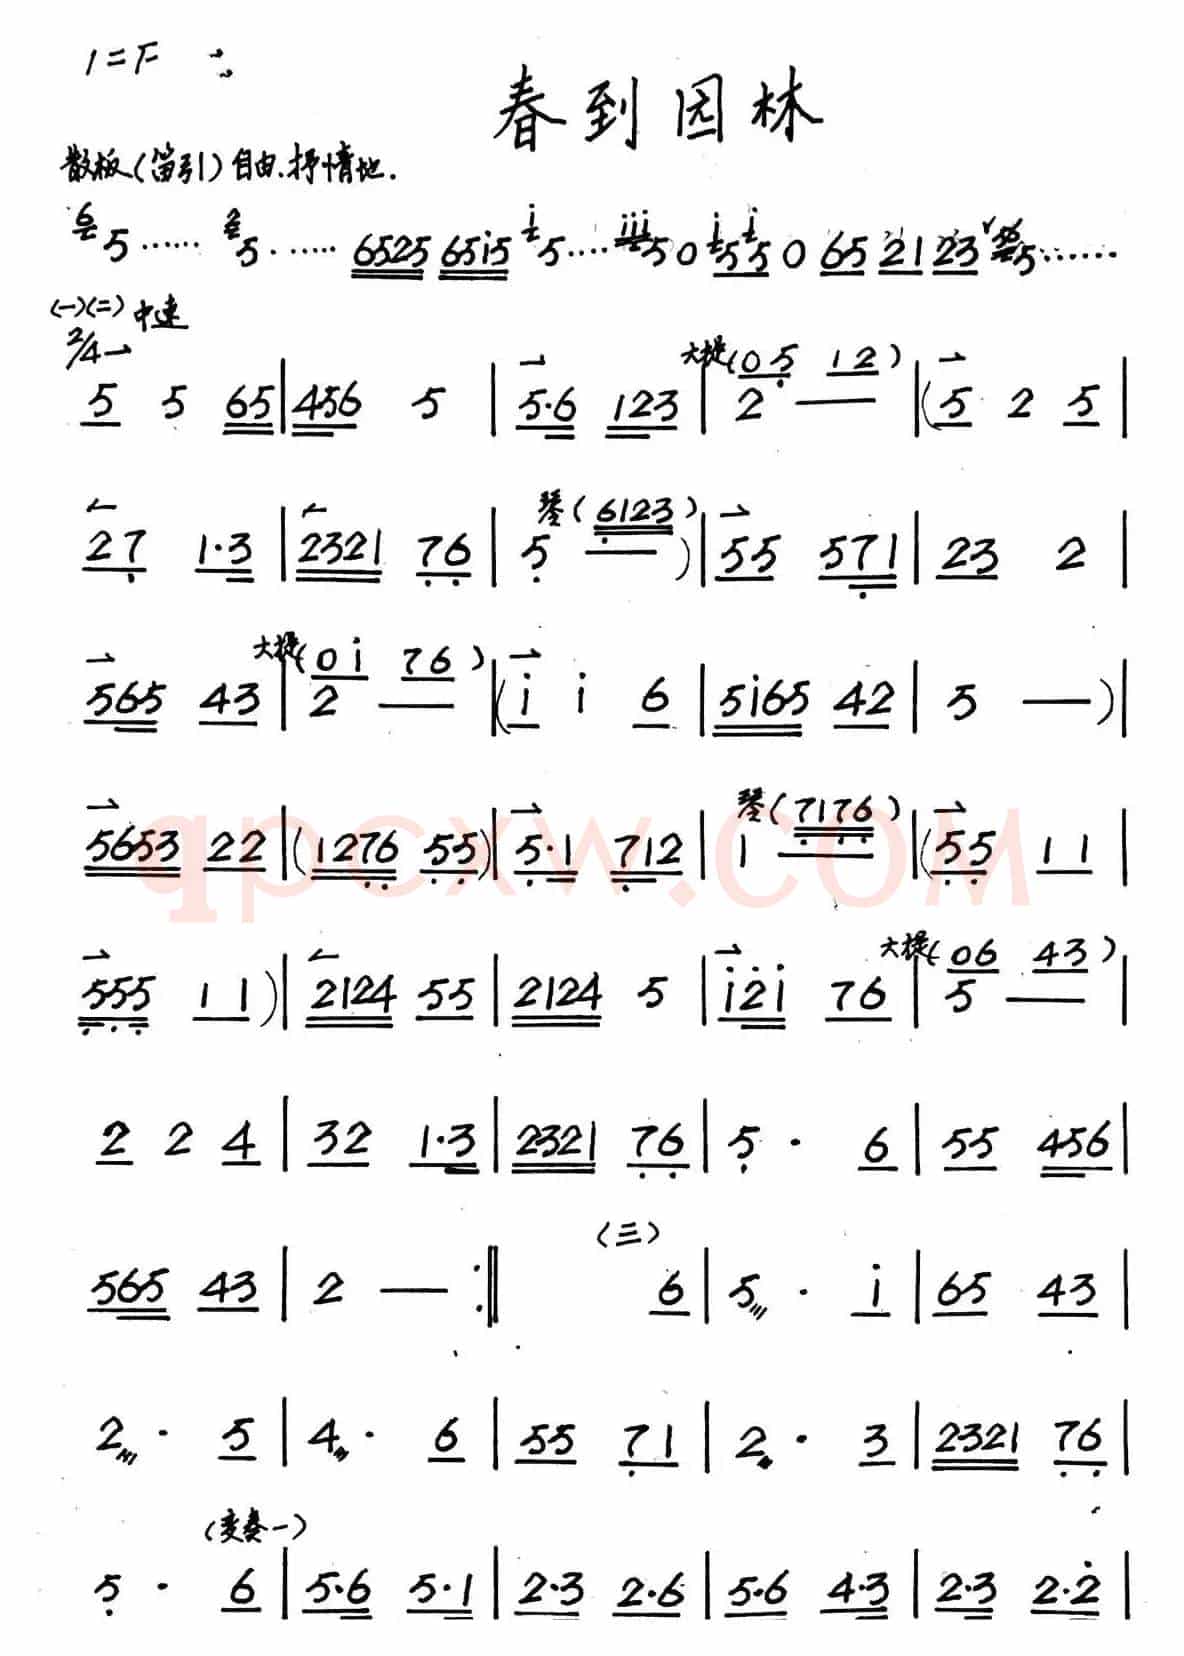 1=F
春到园林
散板(笛引)自由、抒情地.
6 5······ 2 5······ 6525 65i5 i 5···· iii 5 0 i5 i5 0 65 21 23 5······
(一)(二) 中速
2/4
大提(05 12)
5 5 65 | 456 5 | 5·6 123 | 2 — | (5 2 5 |
琴(6123)
27 1·3 | 2321 76 | 5 — ) | 55 571 | 23 2 |
大提(0i 76)
565 43 | 2 — | (i i 6 | 5i65 42 | 5 — ) |
琴(7176)
5653 22 | (1276 55) | 5·1 712 | 1 — | (55 11 |
大提(06 43)
555 11 ) | 2124 55 | 2124 5 | i2i 76 | 5 — |
2 2 4 | 32 1·3 | 2321 76 | 5 · 6 | 55 456 |
(三)
565 43 | 2 — :‖ 6 | 5 · i | 65 43 |
2 · 5 | 4 · 6 | 55 71 | 2 · 3 | 2321 76 |
(变奏一)
5 · 6 | 5·6 5·1 | 2·3 2·6 | 5·6 4·3 | 2·3 2·2 |
qpcxw.COM